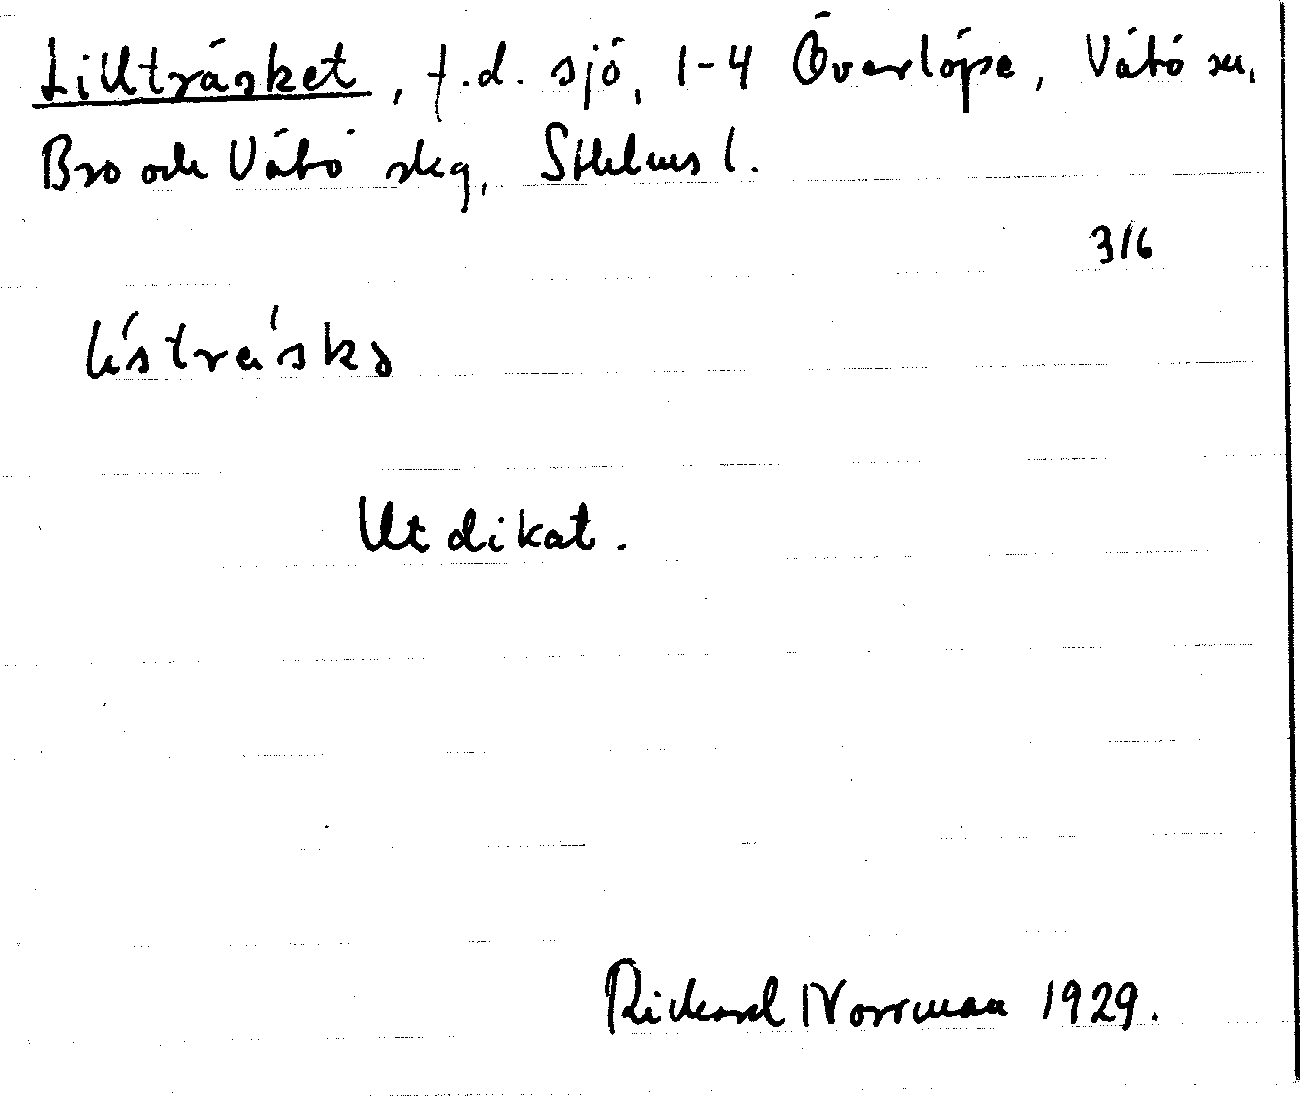 Lillträsket, f.d. sjö, 1-4 Överlöpe, Vätö sn,
Bro och Vätö skg, Sthlms l.
3/6
Utdikat.
Rickard Norrman 1929.